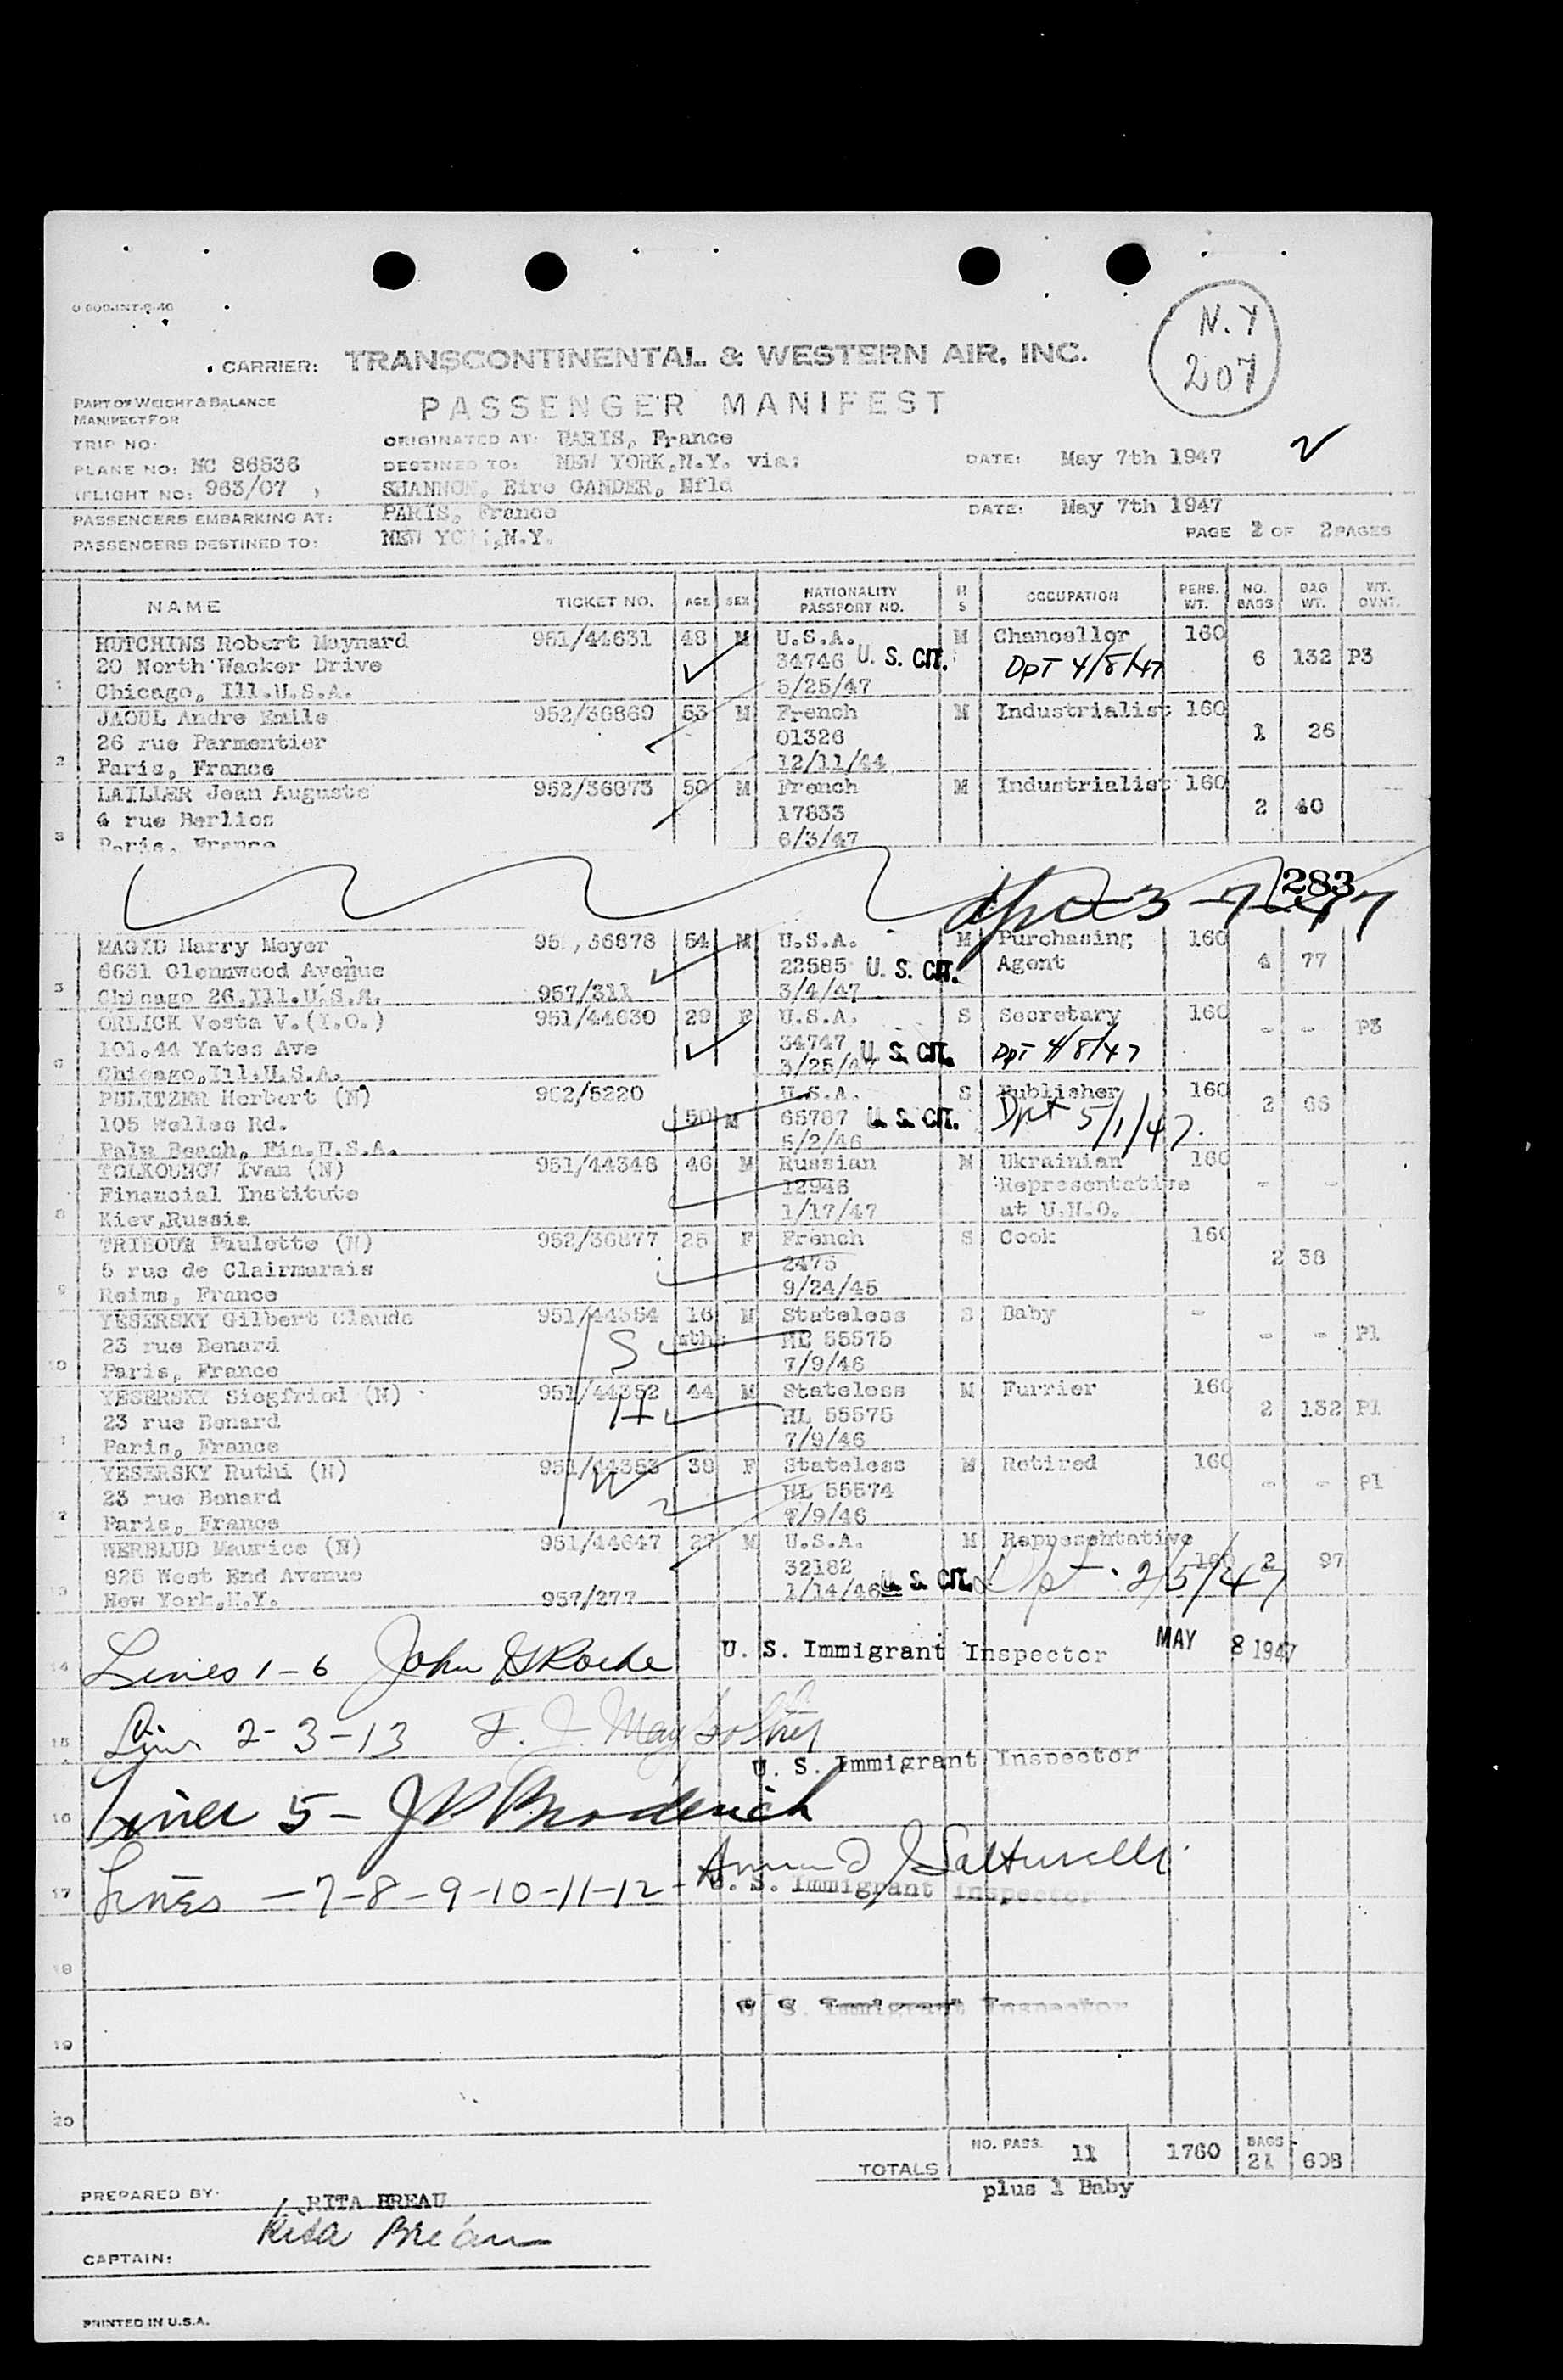 N.Y
207
CARRIER: TRANSCONTINENTAL & WESTERN AIR, INC.
PASSENGER MANIFEST
PART OF WEIGHT & BALANCE
MANIFEST FOR
TRIP NO:
ORIGINATED AT: PARIS, France
PLANE NO: NC 86536 DESTINED TO: NEW YORK,N.Y. via: DATE: May 7th 1947
(FLIGHT NO: 963/07 ) SHANNON, Eire GANDER, Nfld
PASSENGERS EMBARKING AT: PARIS, France DATE: May 7th 1947
PASSENGERS DESTINED TO: NEW YORK,N.Y. PAGE 2 OF 2 PAGES
NAME TICKET NO. AGE SEX NATIONALITY PASSPORT NO. M S OCCUPATION PERS. WT. NO. BAGS BAG WT. WT. OVNT.
HUTCHINS Robert Maynard 951/44631 48 M U.S.A. M Chancellor 160
20 North Wacker Drive 34746 U. S. CIT. Dpt 4/8/47 6 132 P3
1 Chicago, Ill.U.S.A. 5/25/47
JAOUL Andre Emile 952/36869 53 M French M Industrialist 160
26 rue Parmentier 01326 1 26
2 Paris, France 12/11/44
LAILLER Jean Auguste 952/36873 50 M French M Industrialist 160
4 rue Berlios 17833 2 40
3 Paris, France 6/3/47
283
MAGID Harry Meyer 36878 54 M U.S.A. M Purchasing 160
6631 Glennwood Avenue 22585 U. S. CIT. Agent 4 77
5 Chicago 26,Ill.U.S.A. 957/311 3/4/47
ORLICK Vesta V.(I.O.) 951/44630 29 F U.S.A. S Secretary 160
101.44 Yates Ave 34747 U. S. CIT. Dpt 4/8/47 - - P3
6 Chicago,Ill.U.S.A. 3/25/47
PULITZER Herbert (N) 902/5220 U.S.A. S Publisher 160
105 Welles Rd. 50 M 65787 U. S. CIT. Dpt 5/1/47. 2 66
7 Palm Beach, U.S.A. 5/2/46
TOLKOUNOV Ivan (N) 951/44348 46 M Russian M Ukrainian 160
Financial Institute 12946 Representative - -
8 Kiev,Russia 1/17/47 at U.N.O.
TRIBOUR Paulette (N) 952/36877 25 F French S Cook 160
5 rue de Clairmarais 2475 2 38
9 Reims, France 9/24/45
YESERSKY Gilbert Claude 951/44354 16 M Stateless S Baby -
23 rue Benard S mths HL 55575 - - P1
10 Paris, France 7/9/46
YESERSKY Siegfried (N) 951/44352 44 M Stateless M Furrier 160
23 rue Benard H HL 55575 2 132 P1
1 Paris, France 7/9/46
YESERSKY Ruthi (N) 951/44353 38 F Stateless M Retired 160
23 rue Benard W HL 55574 - - P1
2 Paris, France 7/9/46
WERBLUD Maurice (N) 951/44647 27 M U.S.A. M
825 West End Avenue 32182 160 2 97
13 New York,N.Y. 957/277 1/14/46 U. S. CIT. Dpt. 2/5/47
14 Lines 1-6 John Roche U. S. Immigrant Inspector MAY 8 1947
15 Lines 2-3-13 F. J.
U. S. Immigrant Inspector
16 Lines 5 - J Broderick
17 Lines -7-8-9-10-11-12- U. S. Immigrant Inspector
18
U. S. Immigrant Inspector
19
20
TOTALS NO. PASS. 11 1760 BAGS 21 608
plus 1 Baby
PREPARED BY: RITA BREAU
Rita Breau
CAPTAIN:
PRINTED IN U.S.A.